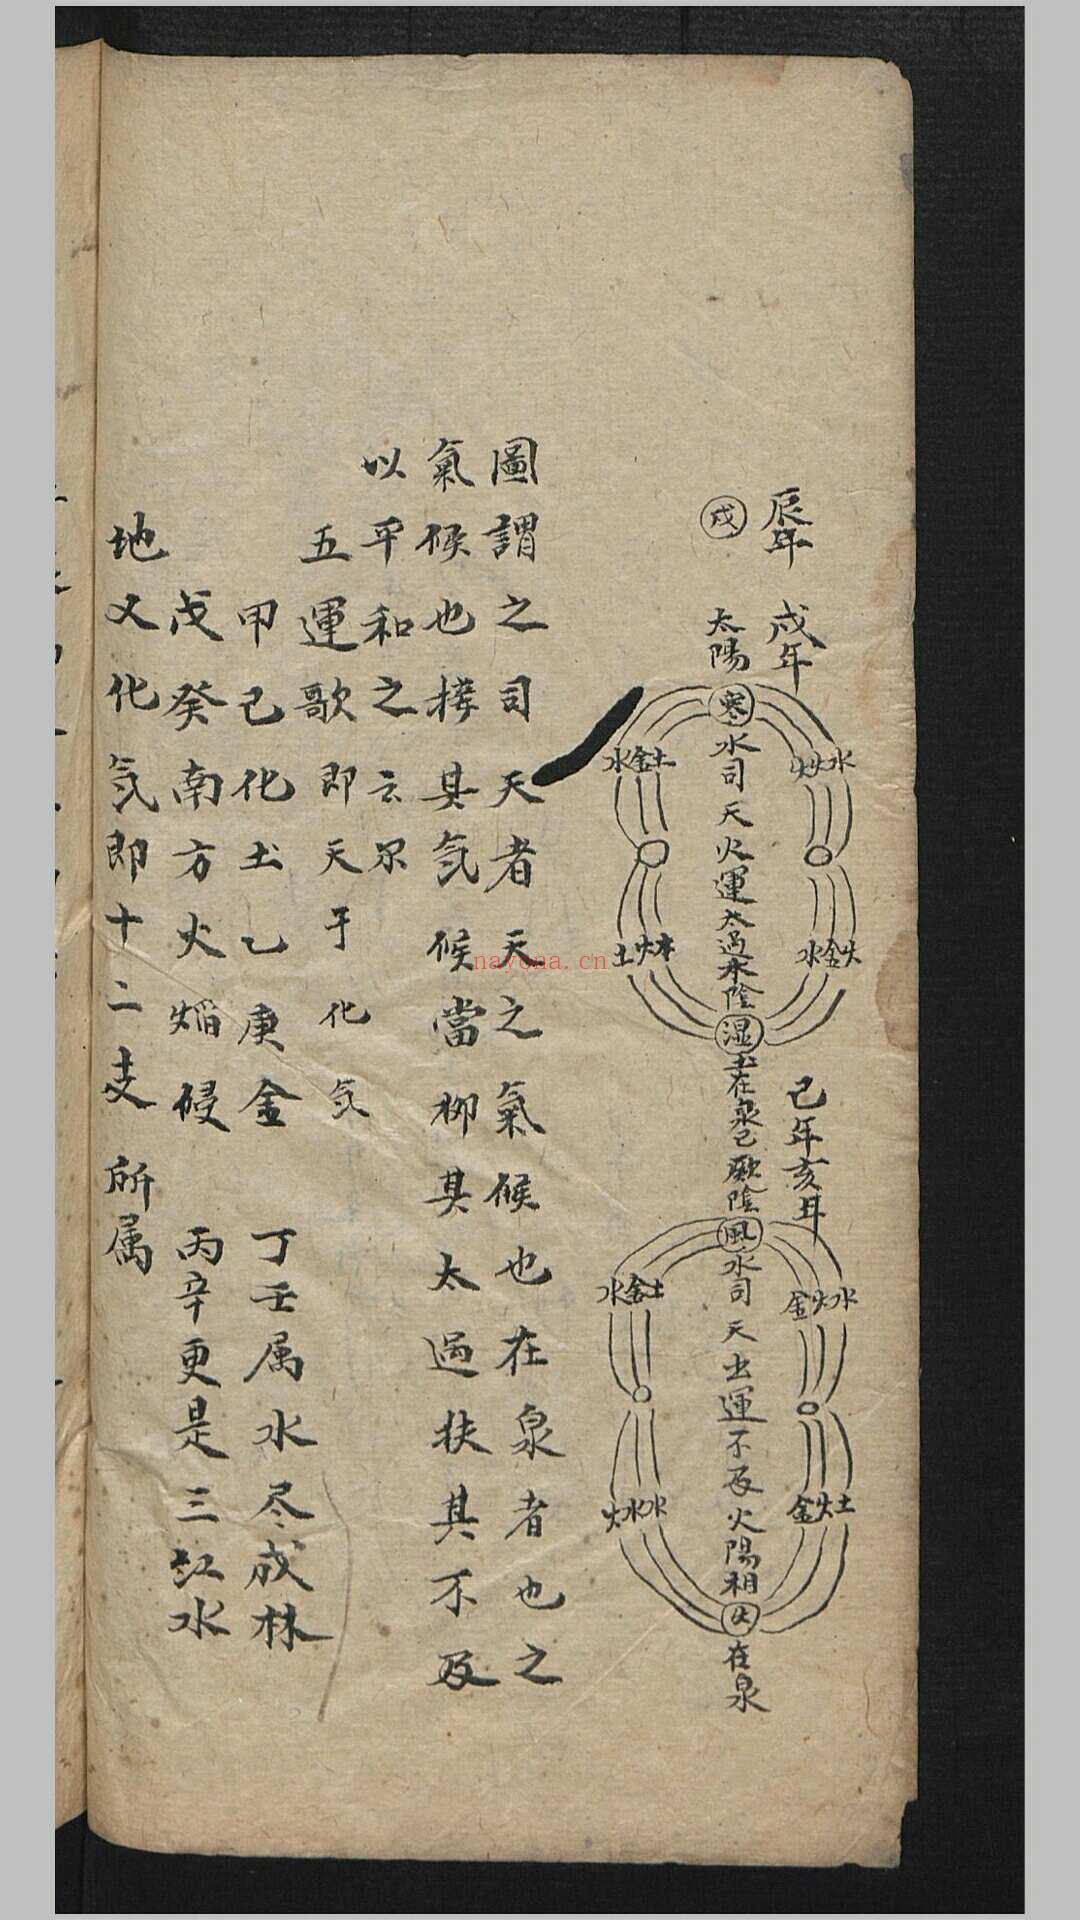 辰年 戌年
戌 太陽寒水司天火運太過太陰湿土在泉
己年亥年
厥陰風水司天土運不及火陽相火在泉
水金土
火火水
土火木
水金火
水金土
金火水
火水水
金火土
圖謂之司天者天之氣候也在泉者也之
氣候也擇其気候當柳其太過扶其不及
以平和之云尔
五運歌即天干化気
甲己化土乙庚金 丁壬属水尽成林
戊癸南方火焰侵 丙辛更是三江水
地又化気即十二支所属
nayona.cn